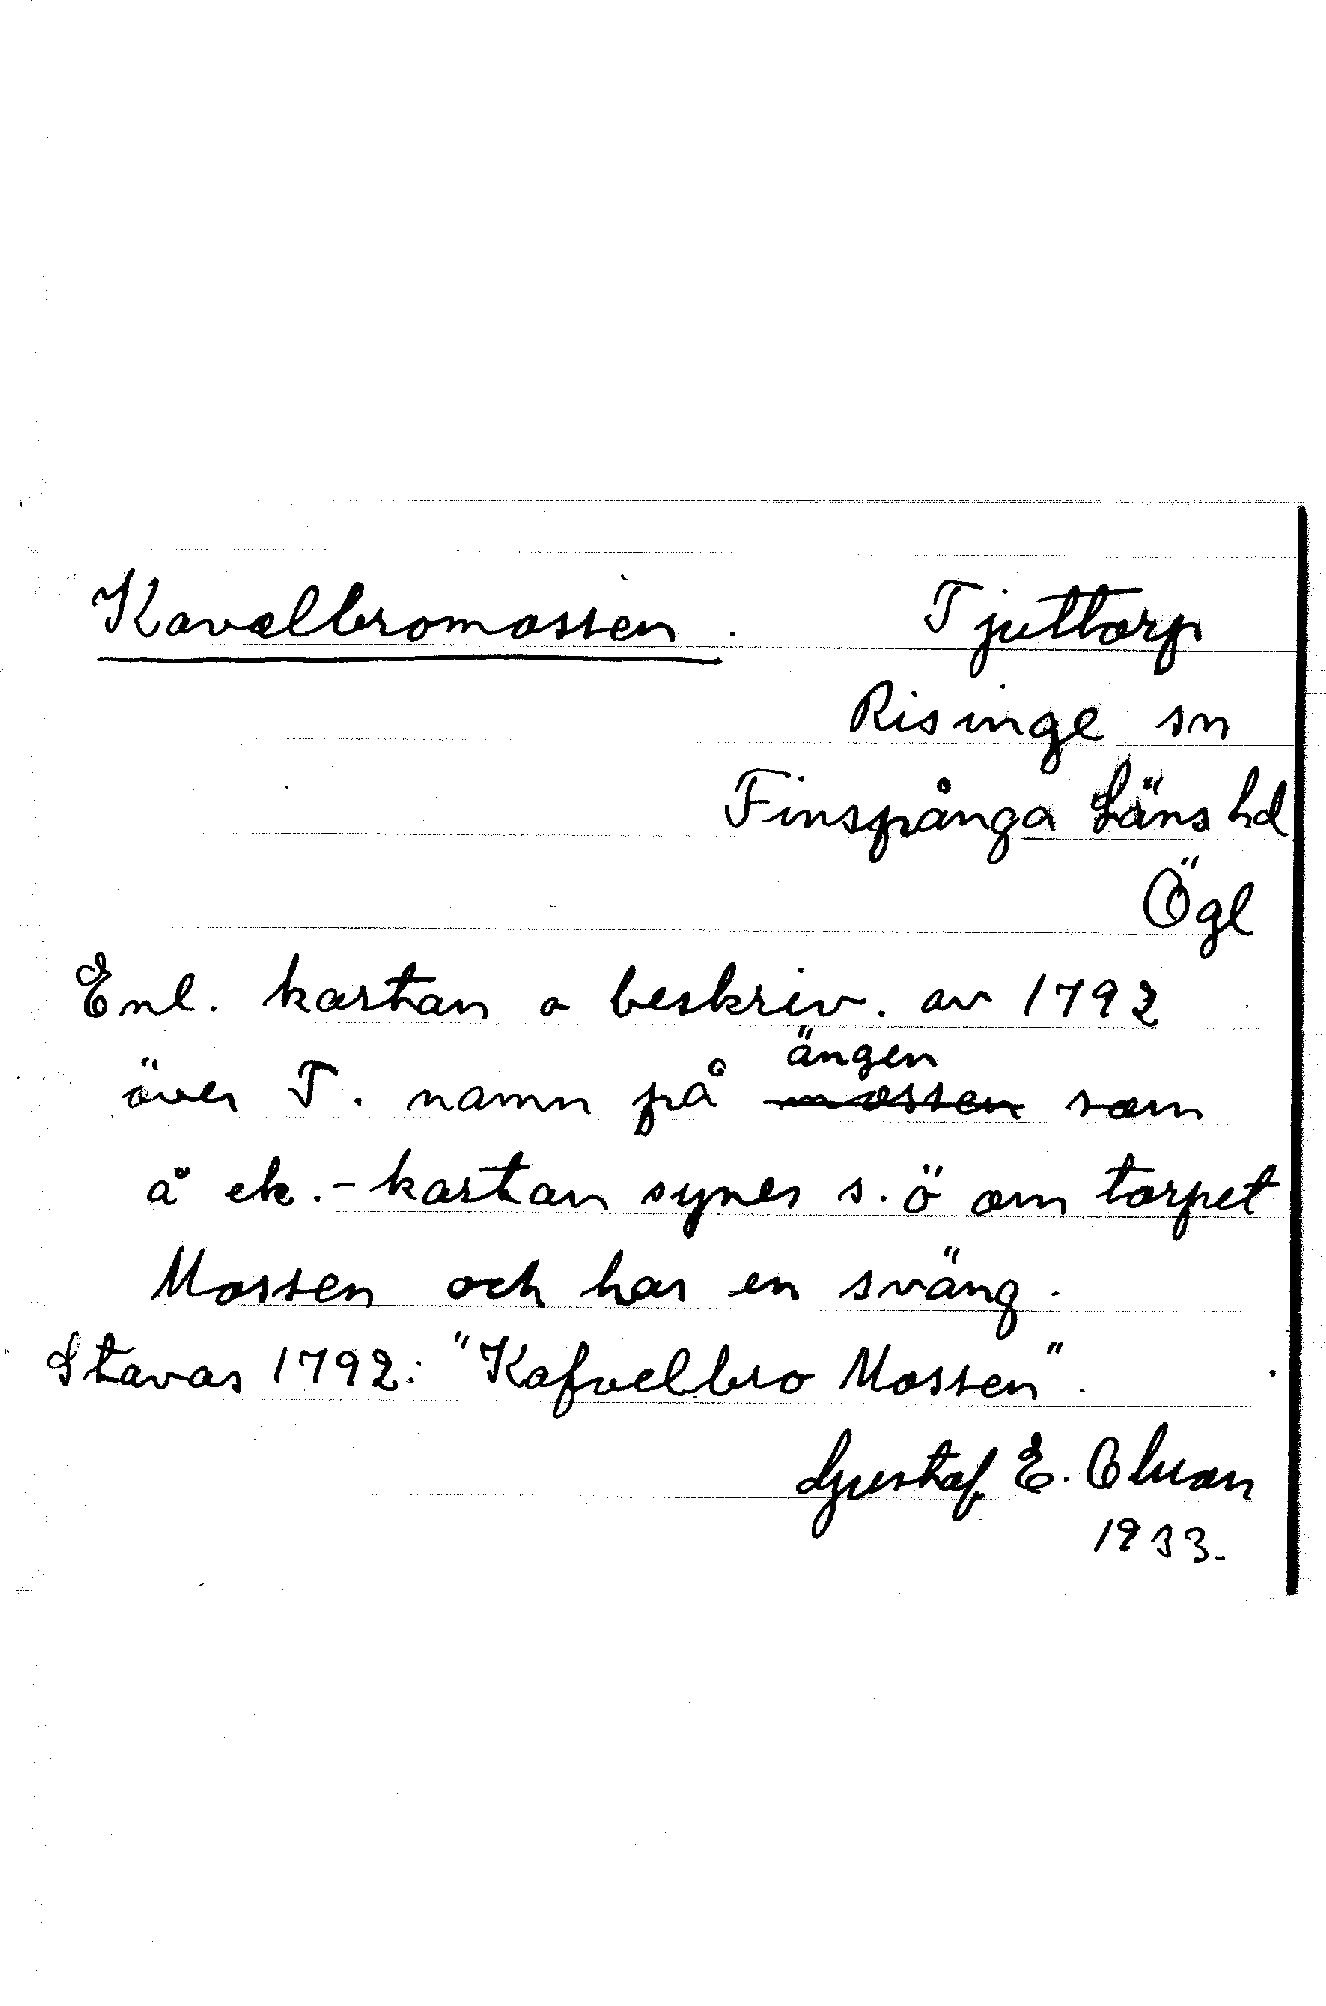 Kavelbromossen. Tjuttorp
Risinge sn
Finspånga Läns hd
Ögl
Enl. kartan o beskriv. av 1792
ängen
över T. namn på mossen som
å ek.-kartan synes s.ö om torpet
Mossen och har en sväng.
Stavas 1792: "Kafvelbro Mossen".
Gustaf E.
1933.